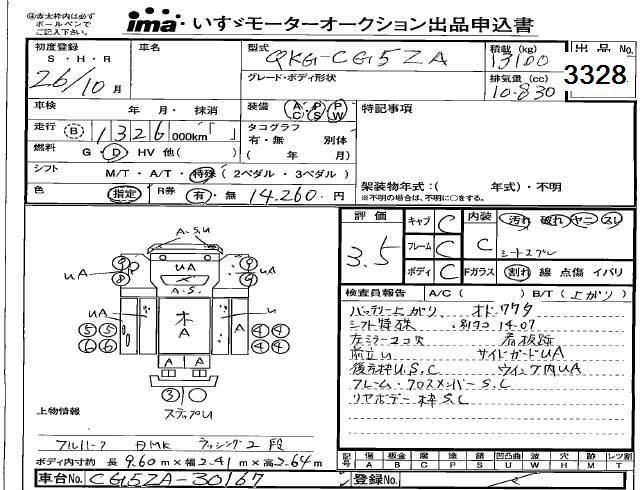 ㊟赤太枠内は必ず
ボールペンで
ご記入下さい。
ima いすゞモーターオークション出品申込書
初度登録
S・H・R
26/10月
車名
型式
QKG-CG5ZA
グレード・ボディ形状
積載(kg)
13100
排気量(cc)
10.830
出品No.
3328
車検 年 月・抹消
装備 AC PS PW
特記事項
走行 B 1326000km「 」
タコグラフ
有・無 別体
( 年 月)
燃料 G・D・HV 他( )
シフト M/T・A/T・特殊(2ペダル・3ペダル)
色 指定 R券 有・無 14.260.円
架装物年式:( 年式)・不明
※不明の場合は、不明に○をする。
評価
3.5
キャブ C
フレーム C
ボディ C
内装 C
汚れ 破れ ヤニ スレ
シートエプレ
Fガラス 割れ 線 点傷 イバリ
A.S.U
UA
UA
A.S.
UA
9 8
9 9
U
U
木
A
A
5 5
6 6
4 4
4 4
A A
3
ステップU
検査員報告 A/C( ) B/T(上がり)
バッテリー上がり オドワワタ
シフト特殊 別タコ 14.07
左ミラーココ欠 看板跡
前立U サイドガードUA
後方枠U.S.C ウイング内UA
フレーム・クロスメンバーS.C
リヤボデー枠S.C
上物情報
フルハーフ AMK ラッシング2段
ボディ内寸約 長9.60m×幅2.41m×高2.64m
記号 傷A 板金B 腐C 塗P 錆S 凹凸曲U 波W 穴H 跡M レツ割T
車台No. CG5ZA-30167
登録No.